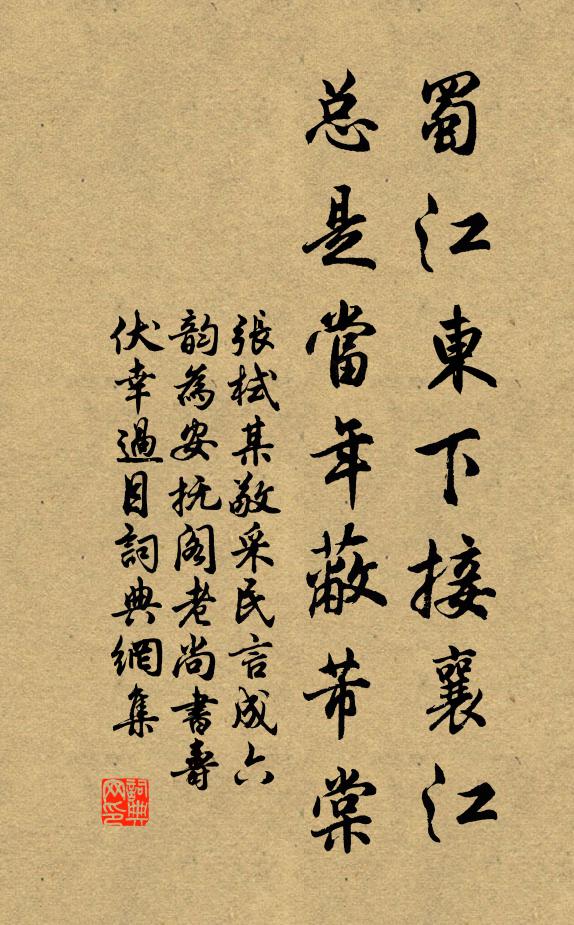 蜀江東下接襄江
总是當年蔽芾棠
張栻某敬采民言成六
韵為安抚阁老尚書壽
伏幸過目詞典網集
詞典网印